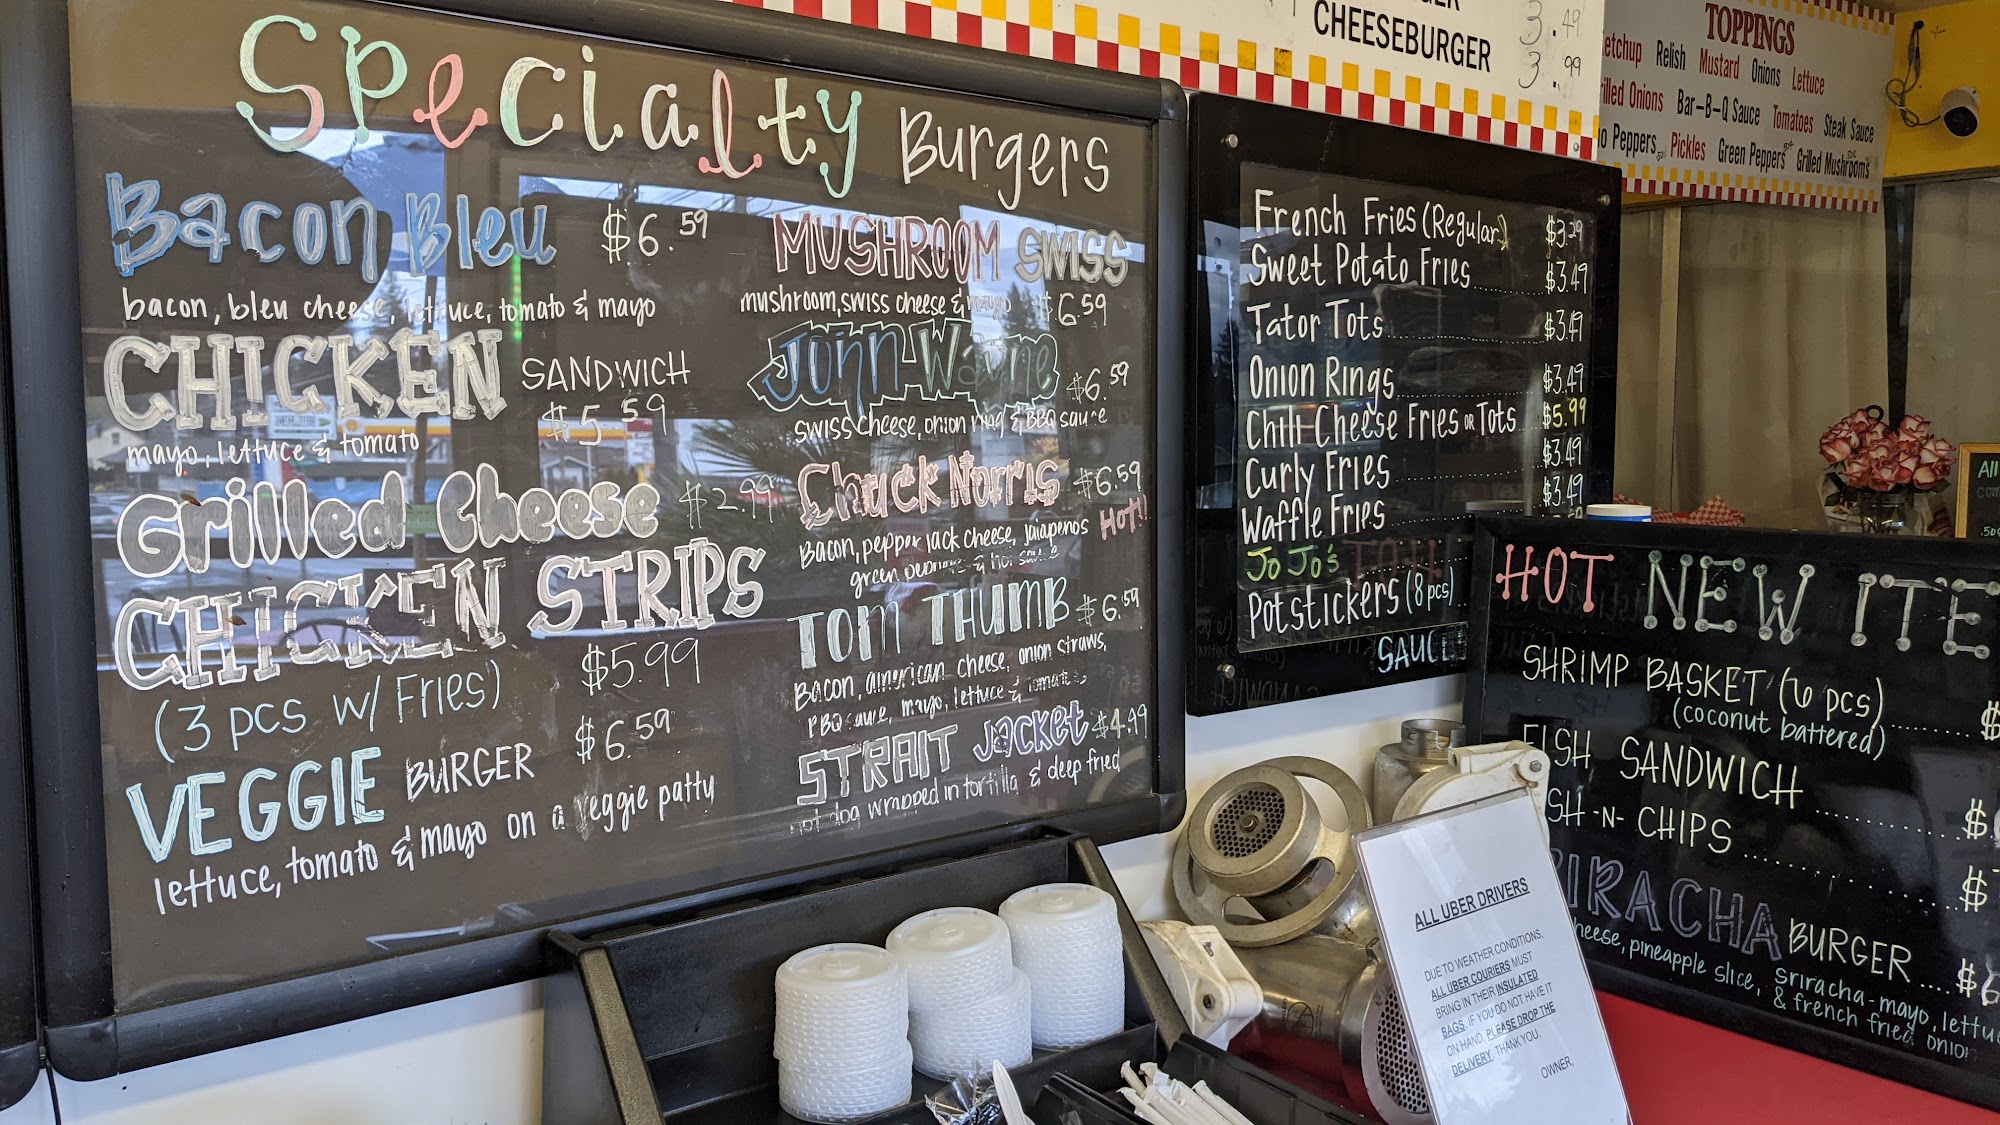 Specialty Burgers
Bacon Bleu $6.59
bacon, bleu cheese, lettuce, tomato & mayo
CHICKEN SANDWICH
$5.59
mayo, lettuce & tomato
Grilled Cheese $2.99
CHICKEN STRIPS
(3 pcs w/ Fries) $5.99
VEGGIE BURGER $6.59
lettuce, tomato & mayo on a veggie patty
MUSHROOM SWISS
mushroom, swiss cheese & mayo $6.59
John Wayne $6.59
swiss cheese, onion ring & BBQ sauce
Chuck Norris $6.59
Bacon, pepper jack cheese, jalapenos HOT!!
green peppers & hot sauce
TOM THUMB $6.59
Bacon, american cheese, onion straws,
BBQ sauce, mayo, lettuce & tomatoes
STRAIT Jacket $4.49
hot dog wrapped in tortilla & deep fried
3.49
CHEESEBURGER 3.99
French Fries (Regular) $3.29
Sweet Potato Fries $3.49
Tator Tots $3.49
Onion Rings $3.49
Chili Cheese Fries or Tots $5.99
Curly Fries $3.49
Waffle Fries $3.49
Jo Jo's
Potstickers (8 pcs)
SAUCE
TOPPINGS
Relish Mustard Onions Lettuce
Onions Bar-B-Q Sauce Tomatoes Steak Sauce
Peppers Pickles Green Peppers Grilled Mushrooms
All
HOT NEW ITE
SHRIMP BASKET (6 pcs) $
(coconut battered)
FISH SANDWICH $
-N- CHIPS $
BURGER $6
pineapple slice, sriracha-mayo,
& french fried onion
ALL UBER DRIVERS
DUE TO WEATHER CONDITIONS,
ALL UBER COURIERS MUST
BRING IN THEIR INSULATED
BAGS. IF YOU DO NOT HAVE IT
ON HAND, PLEASE DROP THE
DELIVERY. THANK YOU.
OWNER,